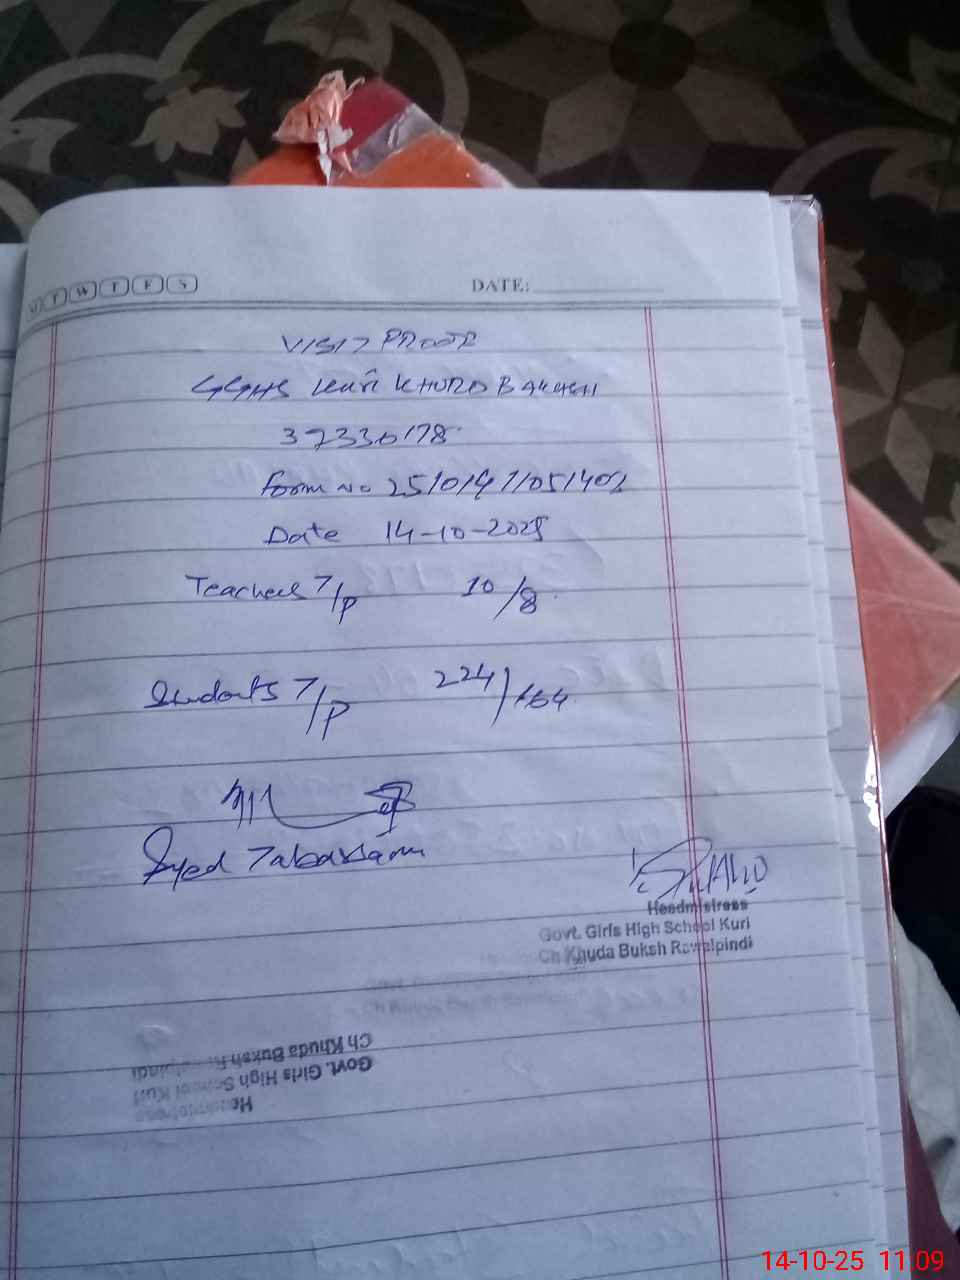 M T W T F S
DATE:
VISIT PROOF
GGHS Kuri KHUDA BAKHSH
37330178
Form No 25101471051402
Date 14-10-2025
Teachers T/P 10/8
Students T/P 224/164
Syed Tabassam
Headmistress
Govt. Girls High School Kuri
Ch Khuda Buksh Rawalpindi
Headmistress
Govt. Girls High School Kuri
Ch Khuda Buksh Rawalpindi
14-10-25 11:09